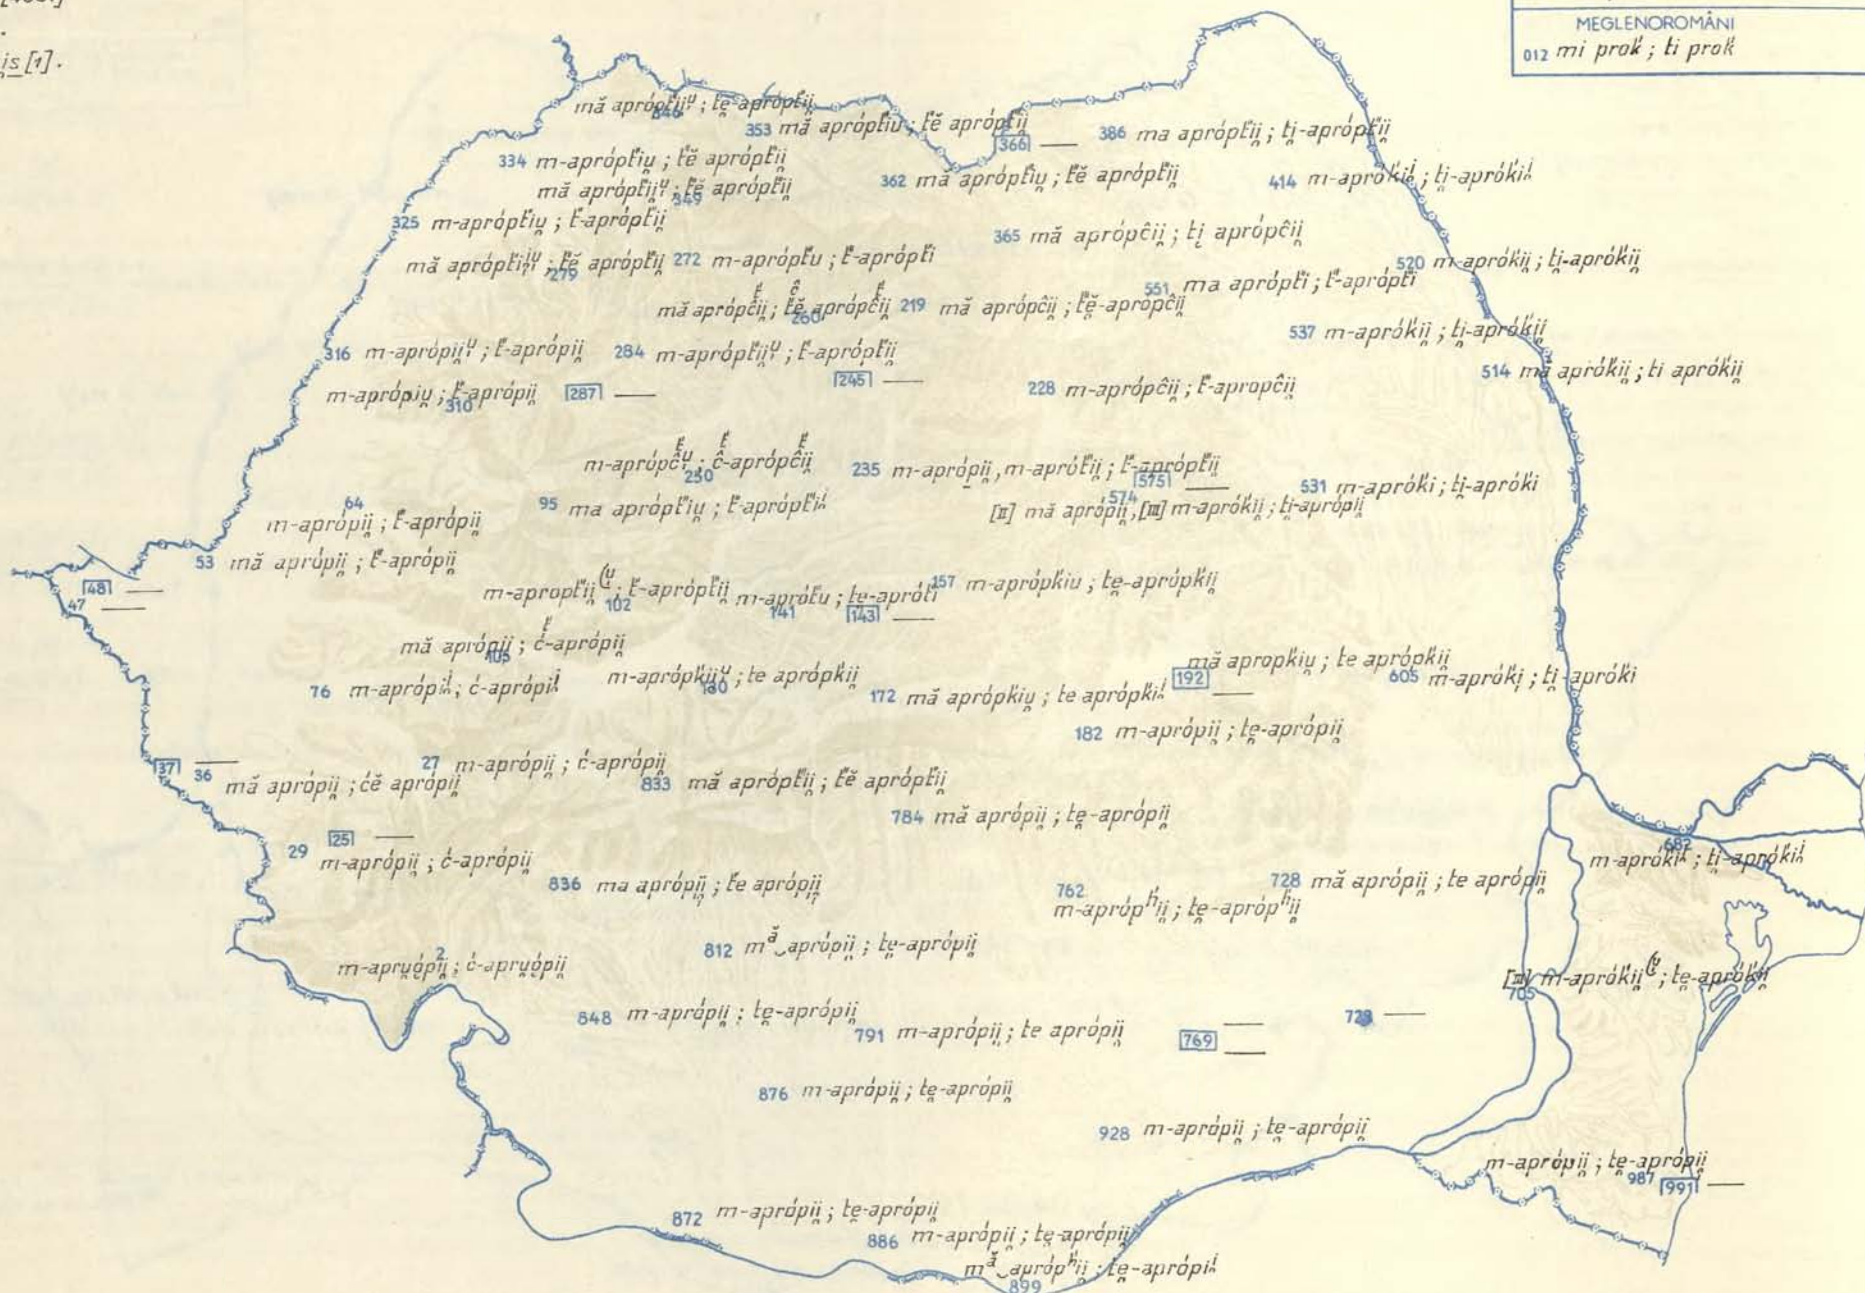 is [1].
MEGLENOROMÂNI
012 mi proḱ ; ti proḱ
mă aprópt́ii̯ᵘ ; te̯-aprópt́ii̯
346
353 mă aprópt́iu̯ ; t́ĕ aprópt́ii̯
366 —
386 ma aprópt́ii̯ ; ti̯-aprópt́ii̯
334 m-aprópt́iu̯ ; t́ĕ aprópt́ii̯
mă aprópt́ii̯ᵘ ; t́ĕ aprópt́ii̯
349
362 mă aprópt́iu̯ ; t́ĕ aprópt́ii̯
414 m-apróḱii̯ ; ti̯-apróḱii̯
325 m-aprópt́iu̯ ; t́-aprópt́ii̯
365 mă aprópĉii̯ ; ti̯ aprópĉii̯
mă aprópt́ii̯ᵘ ; t́ĕ aprópt́ii̯
279
272 m-aprópt́u ; t́-aprópt́i
520 m-apróḱii̯ ; ti̯-apróḱii̯
551 ma aprópt́i ; t́-aprópt́i
mă aprópĉii̯ ; t́ĕ aprópĉii̯
260
219 mă aprópĉii̯ ; t́ĕ-aprópĉii̯
537 m-apróḱii̯ ; ti̯-apróḱii̯
316 m-aprópii̯ᵘ ; t́-aprópii̯
284 m-aprópt́ii̯ᵘ ; t́-aprópt́ii̯
514 mă apróḱii̯ ; ti apróḱii̯
245 —
m-aprópiu̯ ; t́-aprópii̯
310
287 —
228 m-aprópĉii̯ ; t́-apropĉii̯
m-aprópĉᵘ ; ĉ-aprópĉii̯
250
235 m-aprópii̯, m-aprót́ii̯ ; t́-aprópt́ii̯
575 —
531 m-apróḱi ; ti̯-apróḱi
64
m-aprópii̯ ; t́-aprópii̯
95 ma aprópt́iu̯ ; t́-aprópt́ii̯
574
[II] mă aprópii̯, [III] m-apróḱii̯ ; ti̯-aprópii̯
53 mă aprópii̯ ; t́-aprópii̯
48 —
47 —
m-apropt́ii̯⁽ᵘ ; t́-aprópt́ii̯
102
m-aprót́u ; te̯-aprót́i
141
143 —
157 m-aprópḱiu ; te̯-aprópḱii̯
mă aprópii̯ ; ć-aprópii̯
105
76 m-aprópii̯ ; ć-aprópii̯
m-aprópḱii̯ᵘ ; te aprópḱii̯
180
172 mă aprópḱiu̯ ; te aprópḱii̯
mă apropḱiu̯ ; te aprópḱii̯
192 —
605 m-apróḱi̯ ; ti̯-apróḱi
182 m-aprópii̯ ; te̯-aprópii̯
37 —
36
mă aprópii̯ ; ćĕ aprópii̯
27 m-aprópii̯ ; ć-aprópii̯
833 mă aprópt́ii̯ ; t́ĕ aprópt́ii̯
784 mă aprópii̯ ; te̯-aprópii̯
25 —
29 m-aprópii̯ ; ć-aprópii̯
682
m-apróḱii̯ ; ti̯-apróḱii̯
836 ma aprópii̯ ; t́e aprópii̯
762
m-aprópʰii̯ ; te̯-aprópʰii̯
728 mă aprópii̯ ; te aprópii̯
812 mᵃ̆‿aprópii̯ ; te̯-aprópii̯
2
m-apru̯ópii̯ ; ć-apru̯ópii̯
[III] m-apróḱii̯⁽ᵘ ; te̯-apróḱii̯
705
848 m-aprópii̯ ; te̯-aprópii̯
791 m-aprópii̯ ; te aprópii̯
769 —
—
723 —
876 m-aprópii̯ ; te̯-aprópii̯
928 m-aprópii̯ ; te̯-aprópii̯
m-aprópii̯ ; te̯-aprópii̯
987
991 —
872 m-aprópii̯ ; te̯-aprópii̯
886 m-aprópii̯ ; te̯-aprópii̯
mᵃ̆‿aprópʰii̯ ; te̯-aprópii̯
899